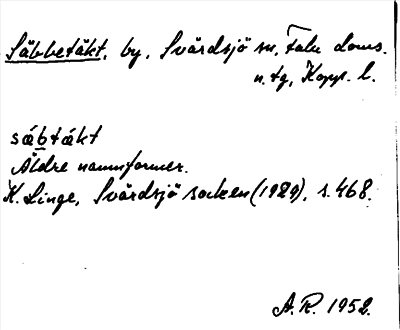 Säbbetäkt, by, Svärdsjö sn, Falu doms.
n. tg, Kopp. l.
sábtákt
Äldre namnformer.
K. Linge, Svärdsjö socken (1929), s. 468.
A. R. 1952.